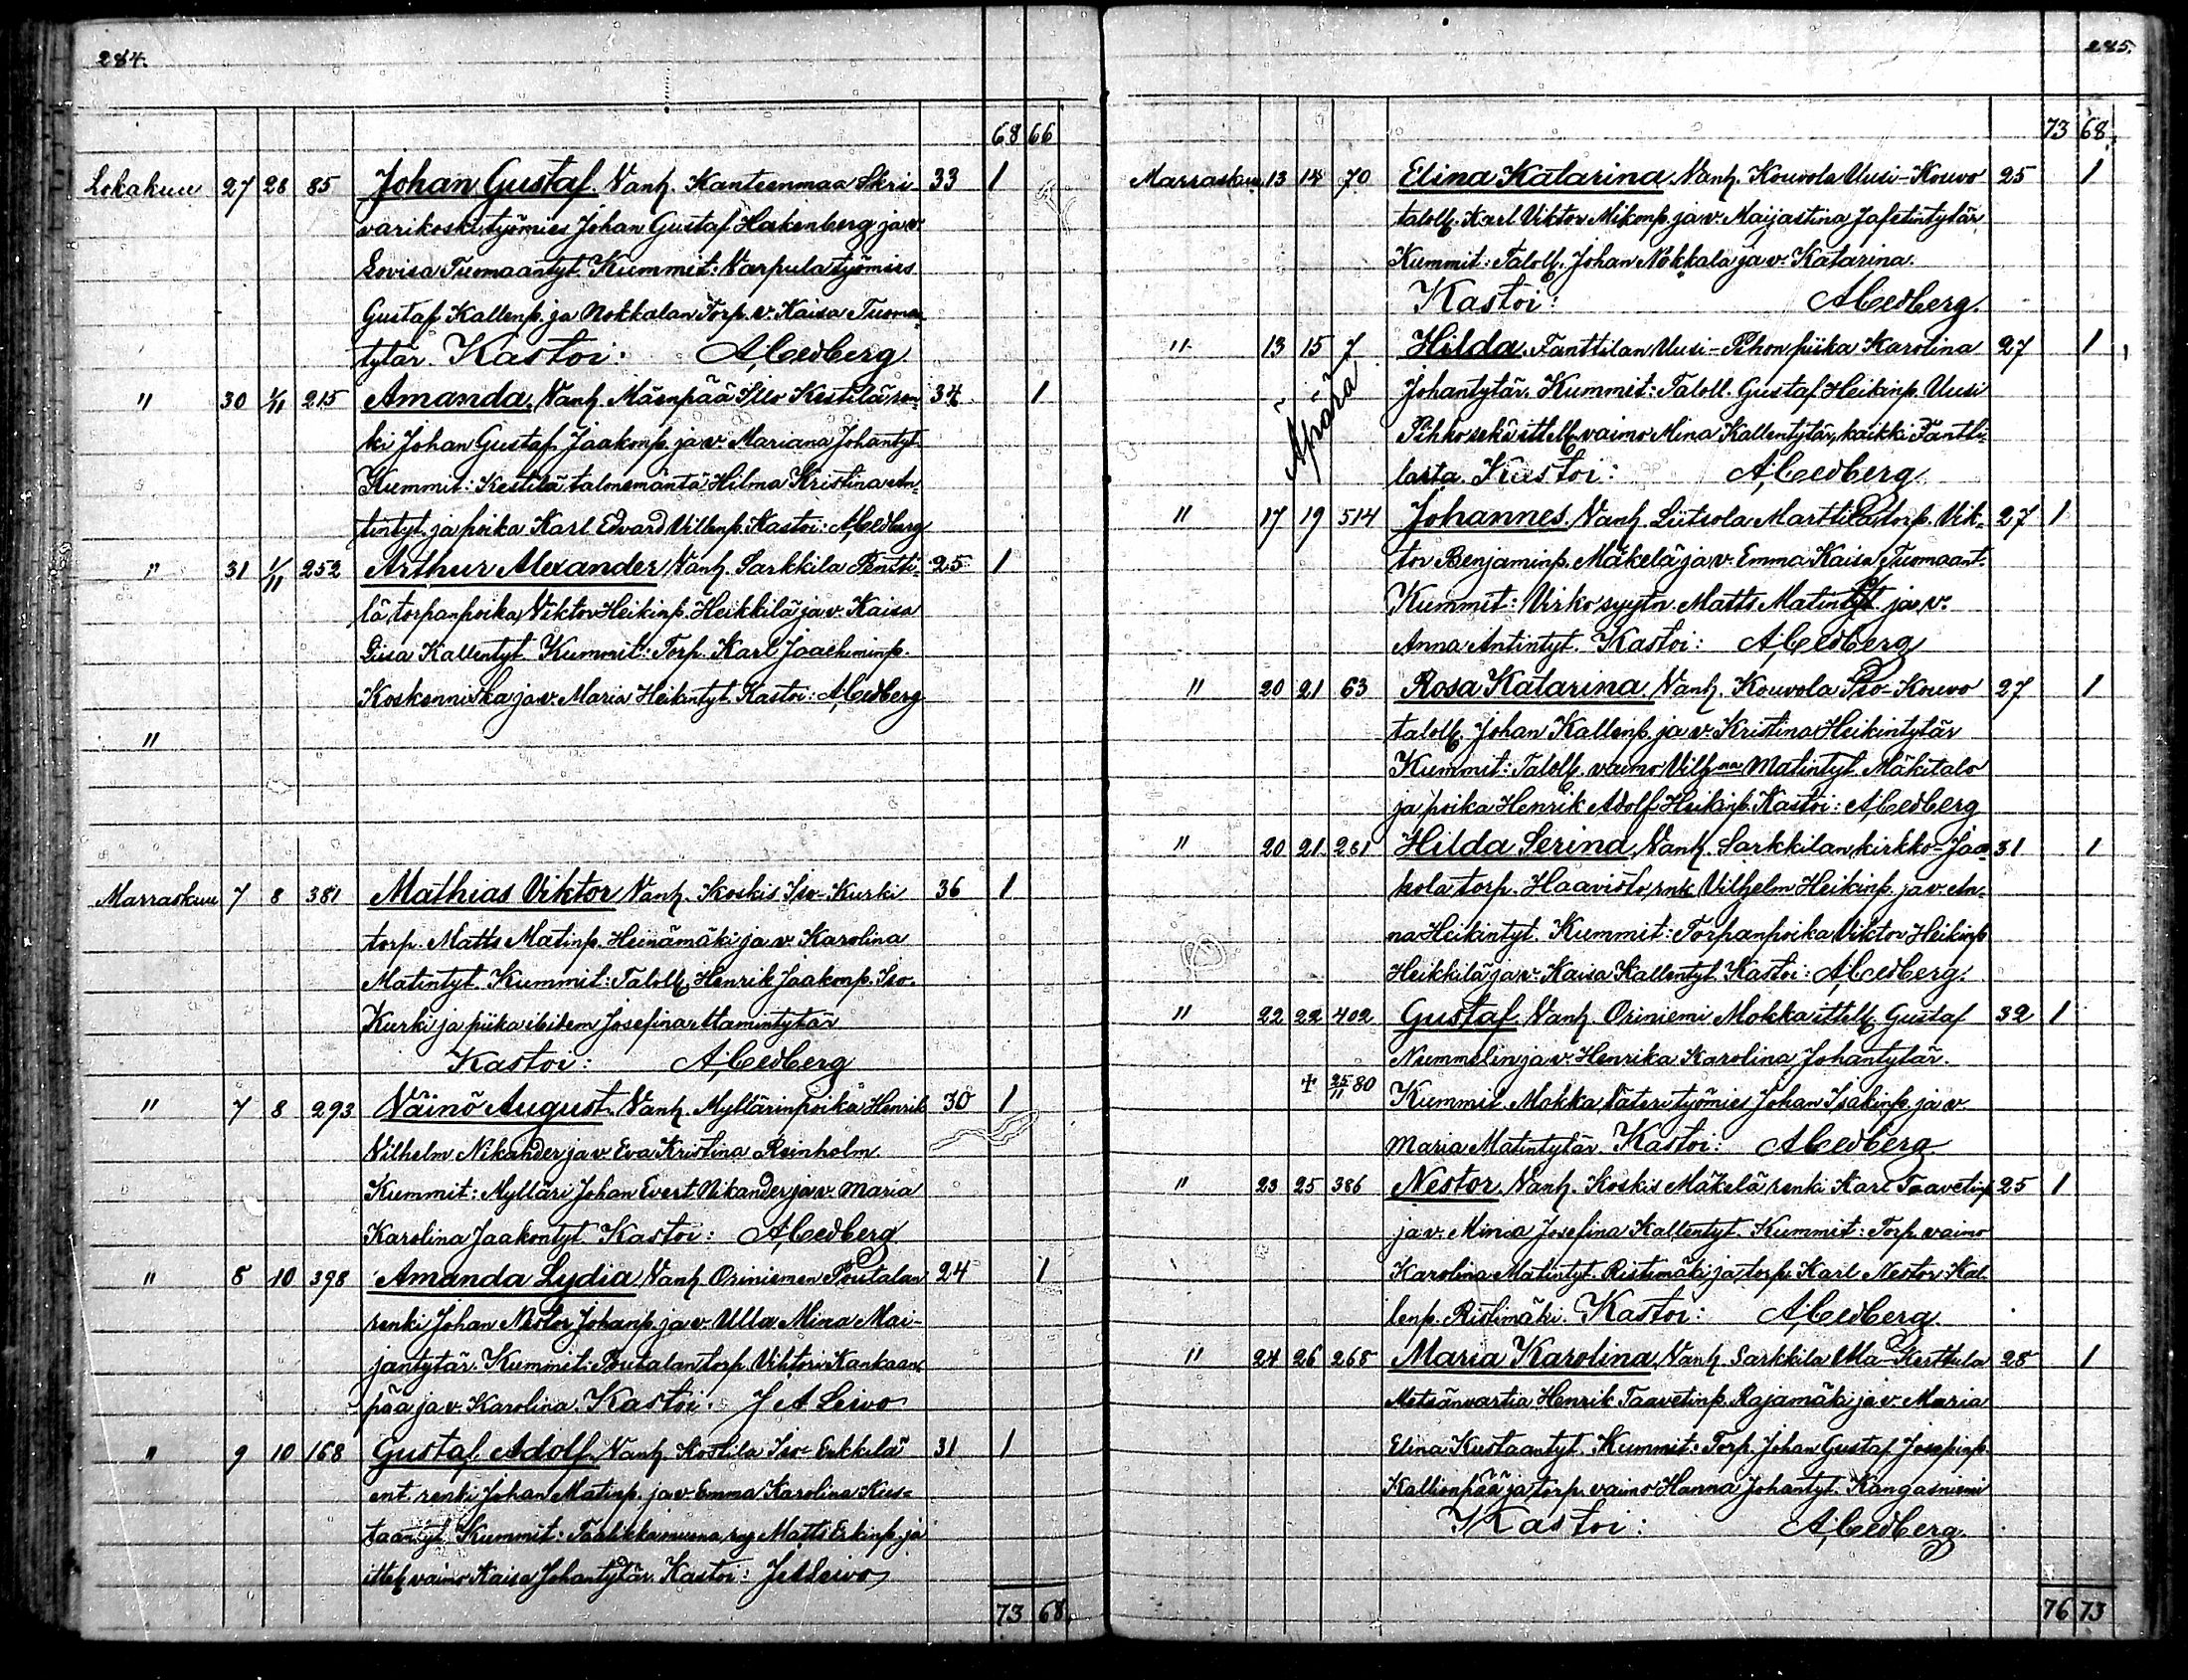 284.
68 66
Lokakuu 27 28 85 Johan Gustaf. Vanh. Kanteenmaa Skri- 33 1
varikoski työmies Johan Gustaf Hakenberg ja v.
Lovisa Tuomaantyt. Kummit: Varpula työmies
Gustaf Kallenp. ja Nokkalan Torp. v. Kaisa Tuoman-
tytär. Kastoi: A Cedberg
" 30 1/11 215 Amanda. Vanh. Mäenpää Kestilä ren- 34 1
ki Johan Gustaf Jaakonp. ja v. Mariana Johantyt.
Kummit: Kestilä talonemäntä Hilma Kristina An-
tintyt. ja poika Karl Edvard Villenp. Kastoi: A Cedberg
" 31 1/11 252 Arthur Alexander Vanh. Sarkkila Pentti- 25 1
lä torpanpoika Viktor Heikinp. Heikkilä ja v. Kaisa
Liisa Kallentyt. Kummit: Torp. Karl Joachiminp.
Koskenniska ja v. Maria Heikintyt. Kastoi: A Cedberg
"
Marraskuu 7 8 381 Mathias Viktor Vanh. Koskis Iso-Kurki 36 1
torp. Matts Matinp. Heinämäki ja v. Karolina
Matintyt. Kummit: Taloll. Henrik Jaakonp. Iso-
Kurki ja piika ibidem Josefina Mamintytär
Kastoi: A Cedberg
" 7 8 293 Väinö August. Vanh. Myllärinpoika Henrik 30 1
Vilhelm Nikander ja v. Eva Kristina Reinholm
Kummit: Mylläri Johan Evert Nikander ja v. Maria
Karolina Jaakontyt. Kastoi: A Cedberg
" 8 10 398 Amanda Lydia Vanh. Oriniemen Poutalan 24 1
renki Johan Nestor Johanp. ja v. Ulla Mina Mai-
jantytär. Kummit: Poutalan torp. Vihtori Kankaan-
pää ja v. Karolina. Kastoi: J A Leivo
" 9 10 168 Gustaf Adolf. Vanh. Kostila Iso-Erkkilä 31 1
ent. renki Johan Matinp. ja v. Emma Karolina Kus-
taantyt. Kummit: Matts Erkinp. ja
ittell. vaimo Kaisa Johantytär. Kastoi: J A Leivo
73 68
285.
73 68
Marraskuu 13 14 70 Elina Katarina. Vanh. Kouvola Uusi-Kouvo 25 1
taloll. Karl Viktor Mikonp. ja v. Maijastina Jafetintytär
Kummit: Taloll. Johan Nokkala ja v. Katarina.
Kastoi: A Cedberg.
" 13 15 7 Hilda. Fanttilan Uusi-Pihon piika Karolina 27 1
Äpärä
Johantytär. Kummit: Taloll. Gustaf Heikinp. Uusi
Pihko sekä ittell. vaimo Mina Kallentytär, kaikki Fantti-
lasta. Kastoi: A Cedberg
" 17 19 514 Johannes. Vanh. Liitsola Marttila torp. Vik- 27 1
tor Benjaminp. Mäkelä ja v. Emma Kaisa Tuomaant.
Kummit: Virkosyytn. Matts Matintyt. ja v.
Anna Antintyt. Kastoi: A Cedberg
" 20 21 63 Rosa Katarina. Vanh. Kouvola Iso-Kouvo 27 1
taloll. Johan Kallenp. ja v. Kristina Heikintytär
Kummit: Taloll. vaimo Vilh:na Matintyt. Mäkitalo
ja poika Henrik Adolf Heikinp. Kastoi: A Cedberg
" 20 21 281 Hilda Serina Vanh. Sarkkilan kirkko-Jaa- 31 1
kola torp. Haavisto, rnk Vilhelm Heikinp. ja v. An-
na Heikintyt. Kummit: Torpanpoika Viktor Heikinp
Heikkilä ja v. Kaisa Kallentyt. Kastoi: A Cedberg.
" 22 22 402 Gustaf Vanh. Oriniemi Mokka ittell. Gustaf 32 1
Nummelin ja v. Henrika Karolina Johantytär.
+ 25/11 80 Kummit. Mokka Säteri työmies Johan Isakinp. ja v.
Maria Matintytär. Kastoi: A Cedberg
" 23 25 386 Nestor. Vanh. Koskis Mäkelä renki Karl Taavetinp 25 1
ja v. Minia Josefina Kallentyt. Kummit: Torp. vaimo
Karolina Matintyt. Ristimäki ja torp. Karl Nestor Kal-
lenp. Ristimäki. Kastoi: A Cedberg.
" 24 26 268 Maria Karolina, Vanh. Sarkkila Ala-Kerttula 28 1
Metsänvartia Henrik Taavetinp. Rajamäki ja v. Maria
Elina Kustaantyt. Kummit: Torp. Johan Gustaf Josepinp.
Kallionpää ja torp. vaimo Hanna Johantyt. Kangasniemi
Kastoi: A Cedberg.
76 73